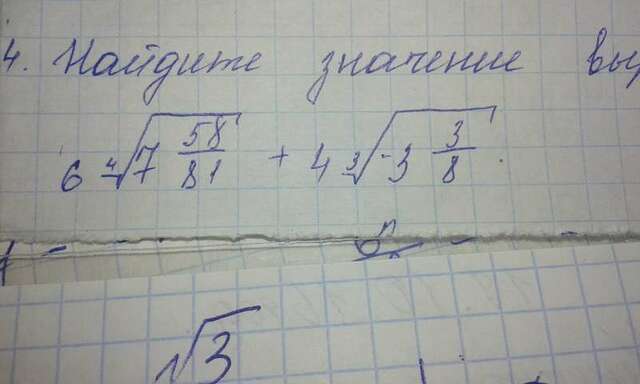 4. Найдите значение выр
6 ∜7 58/81 + 4 ∛-3 3/8.
√3